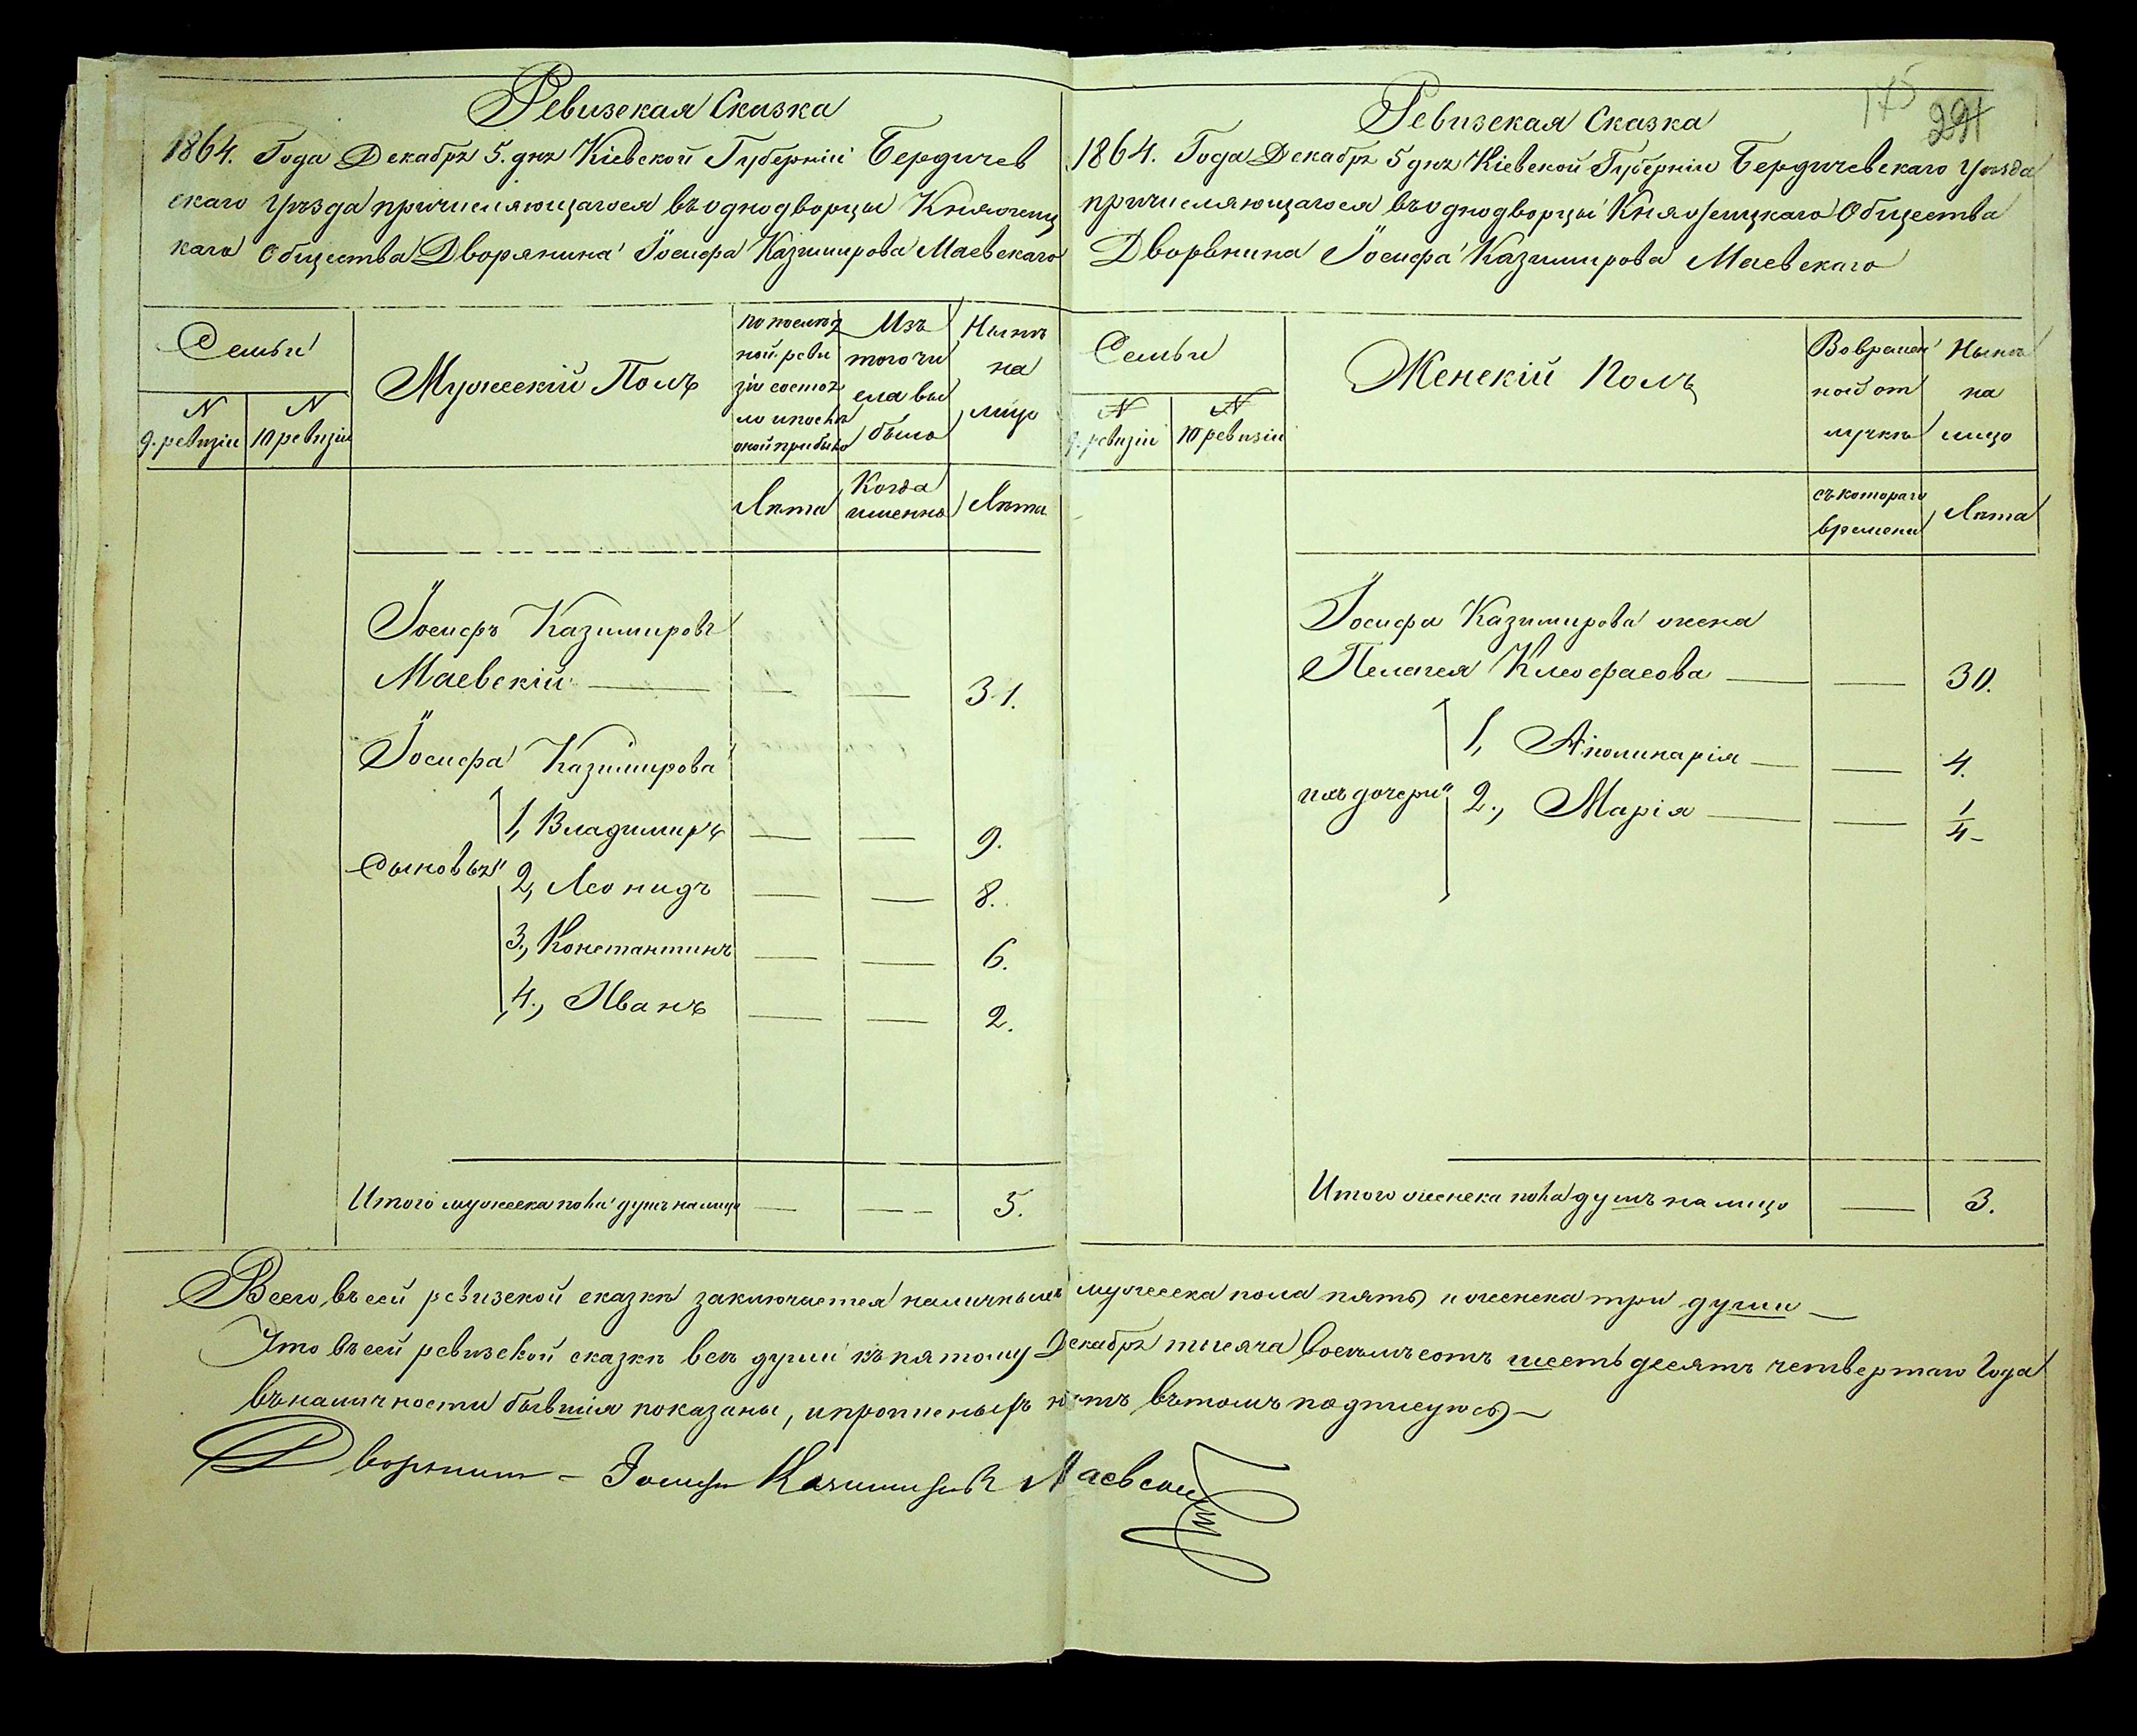 Ревизская Сказка
1864. Года Декабря 5. дня Кіевской Губерніи Бердичев
скаго Уѣзда причисляющагося въ однодворцы Княжиц
каго Общества Дворянина Іосифа Казимирова Маевскаго
Семьи
N
9. ревизіи
N
10 ревизіи
Мужескій Полъ
По послѣд
ной реви
зіи состоя
ло и послѣ
оной прибыло
Лѣта
Изъ
того чи
сла вы
было
Когда
именно
Нынѣ
на
лицо
Лѣта
Іосифъ Казимировъ
Маевскій — — — 31.
Іосифа Казимирова
Сыновья
1, Владимиръ — — 9.
2, Леонидъ — — 8.
3., Константинъ — — 6.
4., Иванъ — — 2.
Итого мужеска пола душъ налицо — — 5.
175
291
Ревизская Сказка
1864. Года Декабря 5 дня Кіевской Губерніи Бердичевскаго Уѣзда
причисляющагося въ однодворцы Княжицкаго Общества
Дворянина Іосифа Казимирова Маевскаго
Семьи
N
9. ревизіи
N
10 ревизіи
Женскій Полъ
Во времен
ной от
лучкѣ
съ котораго
времени
Нынѣ
на
лицо
Лѣта
Іосифа Казимирова жена
Пелагея Клеофасова — — 30.
ихъ дочери
1, Аполинарія — — 4.
2., Марія — — 1/4 -
Итого женска пола душъ на лицо — 3.
Всего въ сей ревизской сказкѣ заключается наличныхъ мужеска пола пять и женска три души —
Что въ сей ревизской сказкѣ всѣ души къ пятому Декабря тысяча восемъсотъ шестьдесятъ четвертаго Года
въ наличности бывшія показаны, и прописныхъ нѣтъ въ томъ подписуюсь —
Дворянинъ - Іосифъ Казимировъ Маевскій